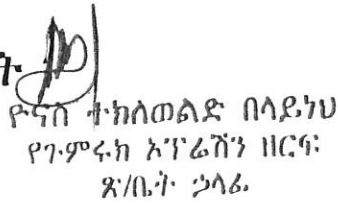 ት
ዮናስ ተክለወልድ በላይነህ
የጉምሩክ ኦፕሬሽን ዘርፍ
ጽ/ቤት ኃላፊ